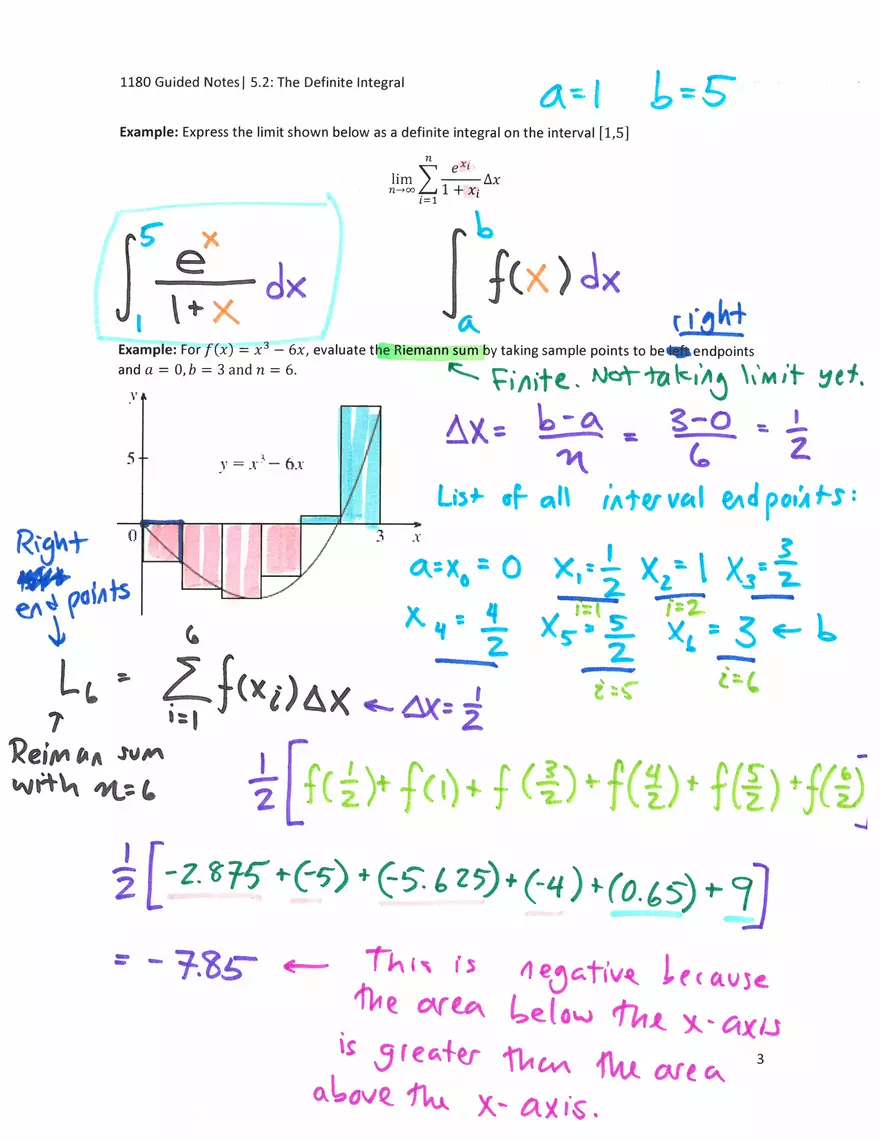 1180 Guided Notes| 5.2: The Definite Integral
a=1 b=5
Example: Express the limit shown below as a definite integral on the interval [1,5]
lim n→∞ ∑ i=1 n e^{x_i} / (1 + x_i) Δx
∫_1^5 e^x / (1+x) dx
∫_a^b f(x) dx
right
Example: For f(x) = x³ − 6x, evaluate the Riemann sum by taking sample points to be left endpoints
and a = 0, b = 3 and n = 6.
← Finite. Not taking limit yet.
y
5
y = x³ − 6x
0 3 x
Δx = (b-a)/n = (3-0)/6 = 1/2
List of all interval endpoints:
a=x₀ = 0 x₁=1/2 x₂=1 x₃=3/2
i=1 i=2
x₄=4/2 x₅=5/2 x₆=3 ← b
i=5 i=6
Right
end points
↓
L₆ = ∑ i=1 6 f(xᵢ)Δx ← Δx=1/2
↑
Reiman sum
with n=6
1/2 [f(1/2)+f(1)+f(3/2)+f(4/2)+f(5/2)+f(6/2)]
1/2 [-2.875+(-5)+(-5.625)+(-4)+(0.65)+9]
= -7.85 ← This is negative because
the area below the x-axis
is greater then the area
above the x-axis.
3